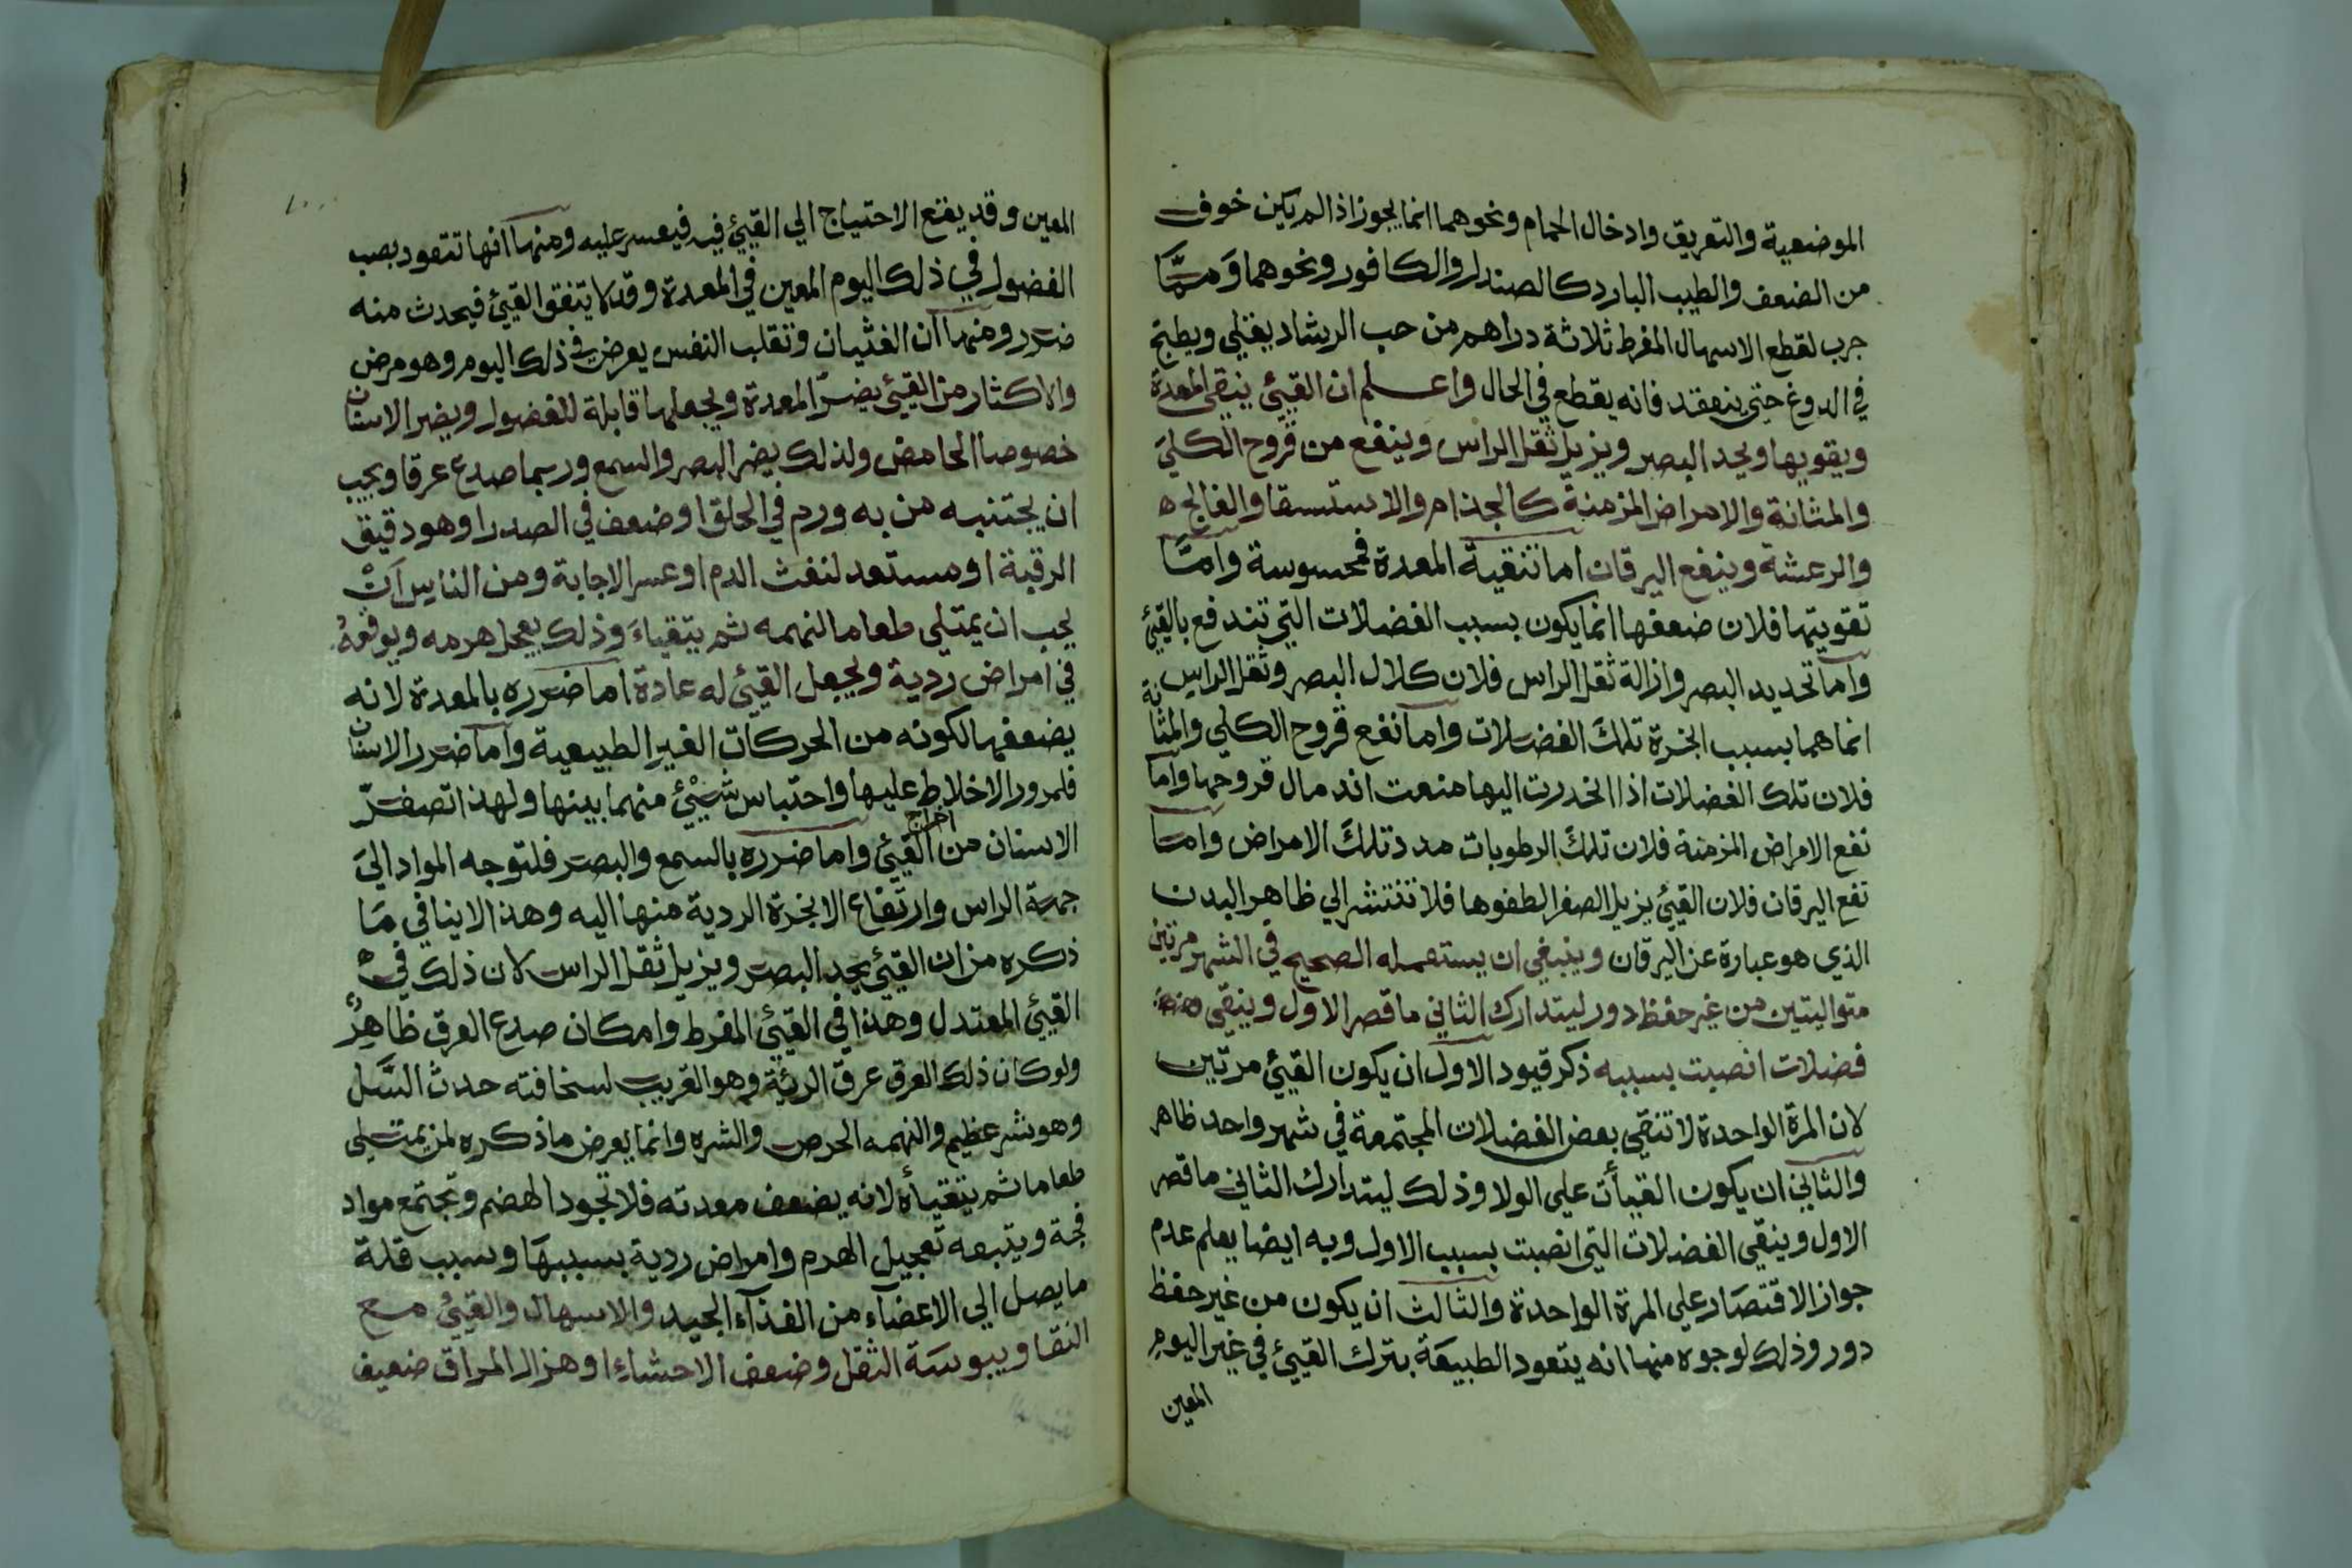 الموضعية والتعريق وادخال الحمام ونحوهما انما يجوز اذا لم يكن خوف
من الضعف والطيب البارد كالصندل والكافور ونحوهما وَممَّا
جرب لقطع الاسهال المفرط ثلاثة دراهم من حب الرشاد يغلي ويطبخ
في الدوغ حتي ينعقد فانه يقطع في الحال واعلم ان القيئ ينقي المعدة
ويقويها ويحد البصر ويزيل ثقل الراس وينفع من قروح الكليَ
والمثانة والامراض المزمنة كالجذام والاستسقا والفالج ه
والرعشة وينفع اليرقان اما تنقية المعدة فمحسوسة وامَّا
تقويتها فلان ضعفها انما يكون بسبب الفضلات التي تندفع بالقيئ
واما تحديد البصر وازالة ثقل الراس فلان كلال البصر وثقل الراس
انما هما بسبب ابخرة تلكَ الفضلات واما نفع قروح الكلي والمثانة
فلان تلك الفضلات اذا انحدرت اليها منعت اندمال قروحها واما
نفع الامراض المزمنة فلان تلكَ الرطوبات مدد تلكَ الامراض وامَّا
نفع اليرقان فلان القيئ يزيل الصفرا لطفوها فلا تنتشر الي ظاهر البدن
الذي هو عبارة عن اليرقان وينبغي ان يستعمله الصحيح في الشهر مرتين
متواليتين من غير حفظ دور ليتدارك الثاني ما قصر الاول وينقي
فضلات انصبت بسببه ذكر قيود الاول ان يكون القيئ مرتين
لان المرة الواحدة لا تنقي بعض الفضلات المجتمعة في شهر واحد ظاهر
والثاني ان يكون القيأت علي الولا وذلك ليتدارك الثاني ما قصر
الاول وينقي الفضلات التي انصبت بسبب الاول وبه ايضا يعلم عدم
جواز الاقتصَار علي المرة الواحدة والثالث ان يكون من غير حفظ
دور وذلك لوجوه منها انه يتعود الطبيعَة بترك القيئ في غير اليوم
المعين
المعين وقد يقع الاحتياج الي القيئ فيه فيعسر عليه ومنها انها تتعود بصب
الفضول في ذلك اليوم المعين في المعدة وقد لا يتفق القيئ فيحدث منه
ضرر ومنها ان الغثيان وتقلب النفس يعرض في ذلك اليوم وهو مرض
والاكثار من القيئ يضرّ المعدة ويجعلها قابلة للفضول ويضر الاسنان
خصوصا الحامض ولذلك يضر البصر والسمع وربما صدع عرقا ويجب
ان يجتنبه من به ورم في الحلق او ضعف في الصدر او هو دقيق
الرقبة او مستعد لنفث الدم او عسر الاجابة ومن الناس اَنْ
يحب ان يمتلي طعاما لنهمه ثم يتقياءَ وذلك يعجل هرمه ويوقعهُ
في امراض ردية ويجعل القيئ له عادة اما ضرره بالمعدة لانه
يضعفها لكونه من الحركات الغير الطبيعية واما ضرر الاسنان
فلمرور الاخلاط عليها واحتباس شيْئ منهما بينها ولهذا تصفرّ
الاسنان من اخراج القيئ واما ضرره بالسمع والبصر فلتوجه المواد اليَ
جهة الراس وارتفاع الابخرة الردية منها اليه وهذا لاينافي مَا
ذكره من ان القيئ يحد البصر ويزيل ثقل الراس لان ذلك في
القيئ المعتدل وهذا في القيئ المفرط وامكان صدع العرق ظاهِرٌ
ولو كان ذلك العرق عرق الرئة وهو القريب لسخافته حدث السّل
وهو شر عظيم والنهمه الحرص والشره وانما يعرض ما ذكره لمن يمتلي
طعاما ثم يتقيأه لانه يضعف معدته فلا تجود الهضم وتجتمع مواد
فجة ويتبعه تعجيل الهرم وامراض ردية بسببهَا وسبب قلة
مايصل الي الاعضآء من الغذآء الجيد والاسهال والقيئُ مع
النقا ويبوسَة الثفل وضعف الاحشاء او هزال المراق ضعيف